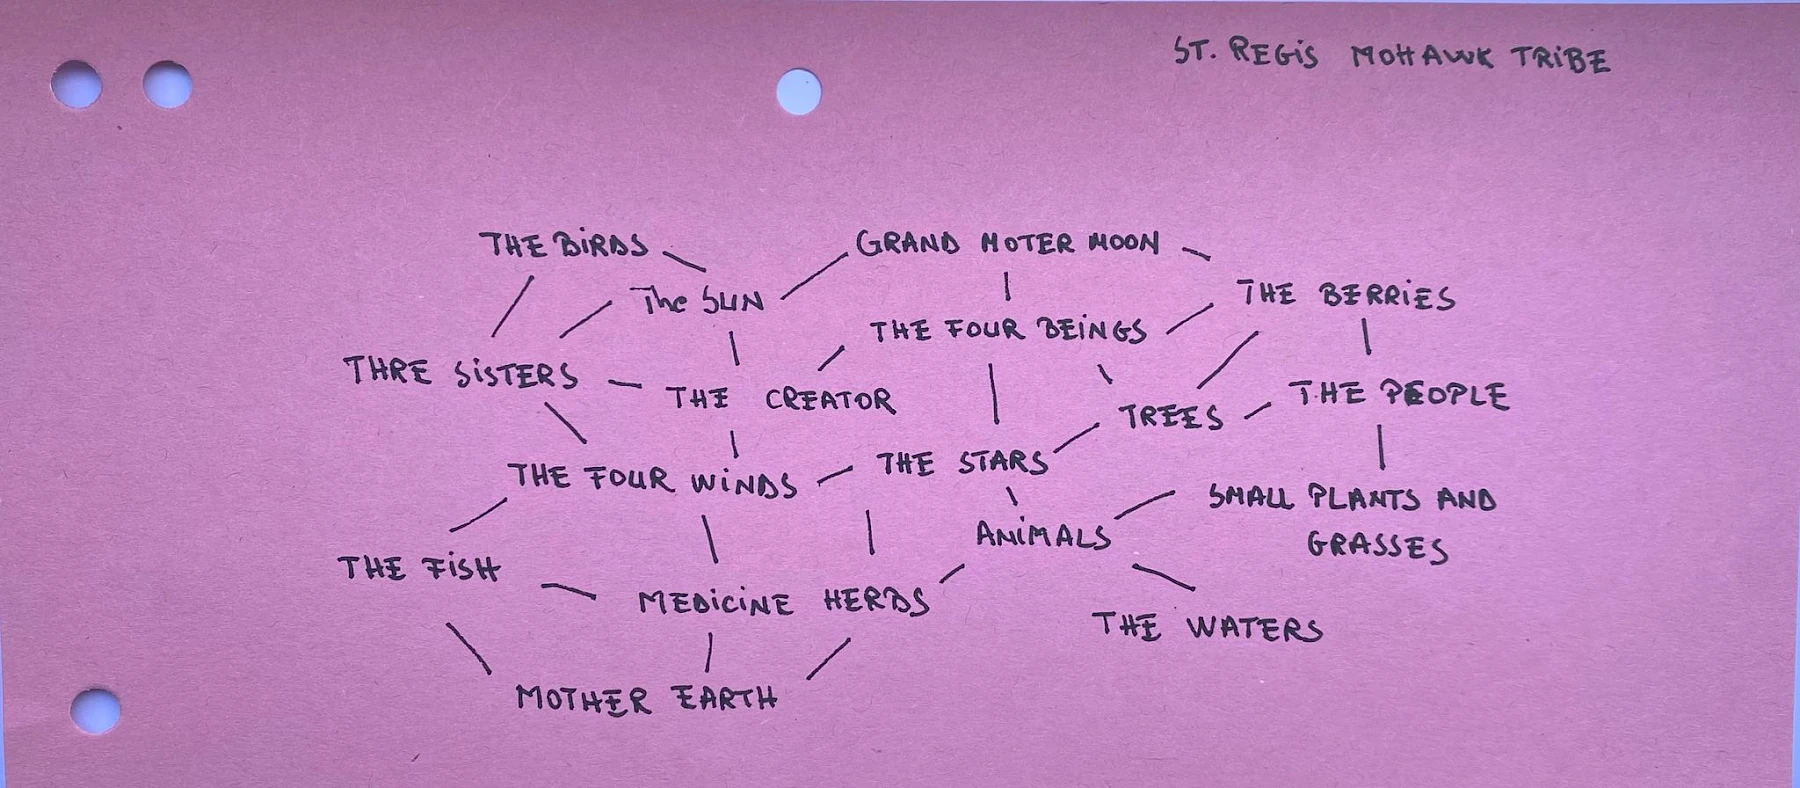 ST. REGiS MOHAWK TRiBE
THE BiRDS
GRAND MOTER MOON
The SUN
THE BERRiES
THE FOUR BEiNGS
THRE SiSTERS
THE CREATOR
THE PEOPLE
TREES
THE FOUR WiNDS
THE STARS
SMALL PLANTS AND
GRASSES
ANiMALS
THE FiSH
MEDiCiNE HERDS
THE WATERS
MOTHER EARTH